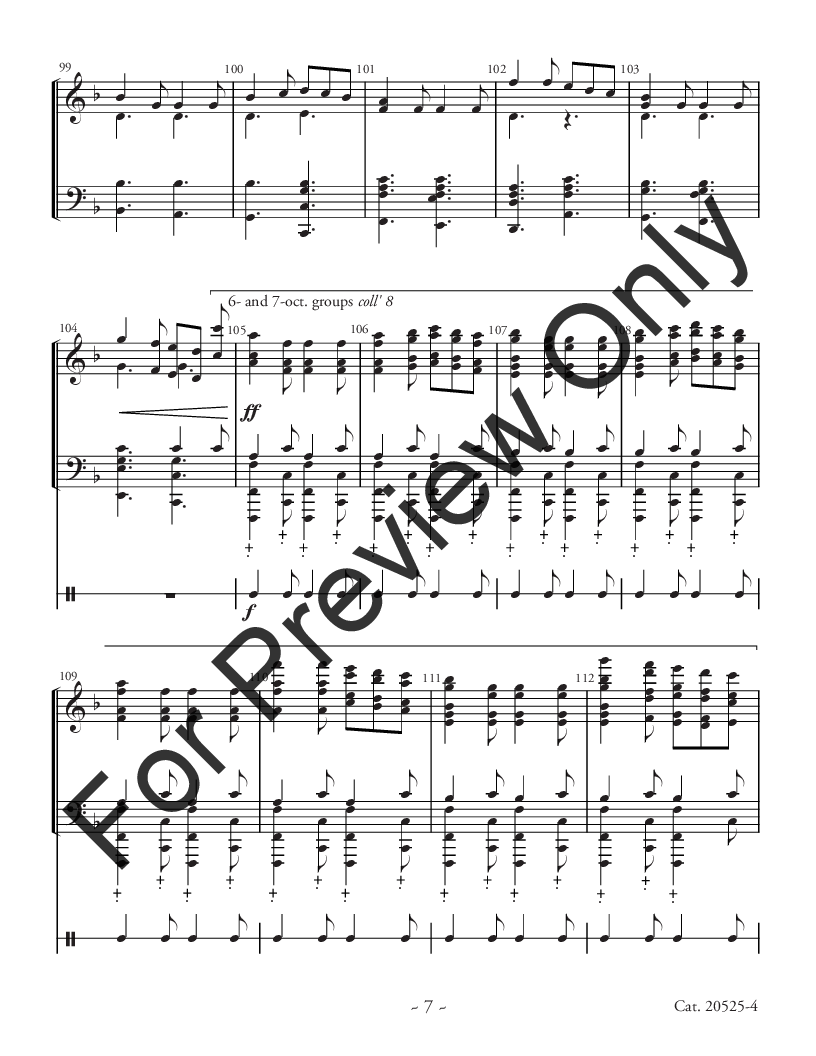 99 100 101 102 103
6- and 7-oct. groups coll' 8
104 105 106 107 108
ff
f
109 110 111 112
For Preview Only
~ 7 ~ Cat. 20525-4